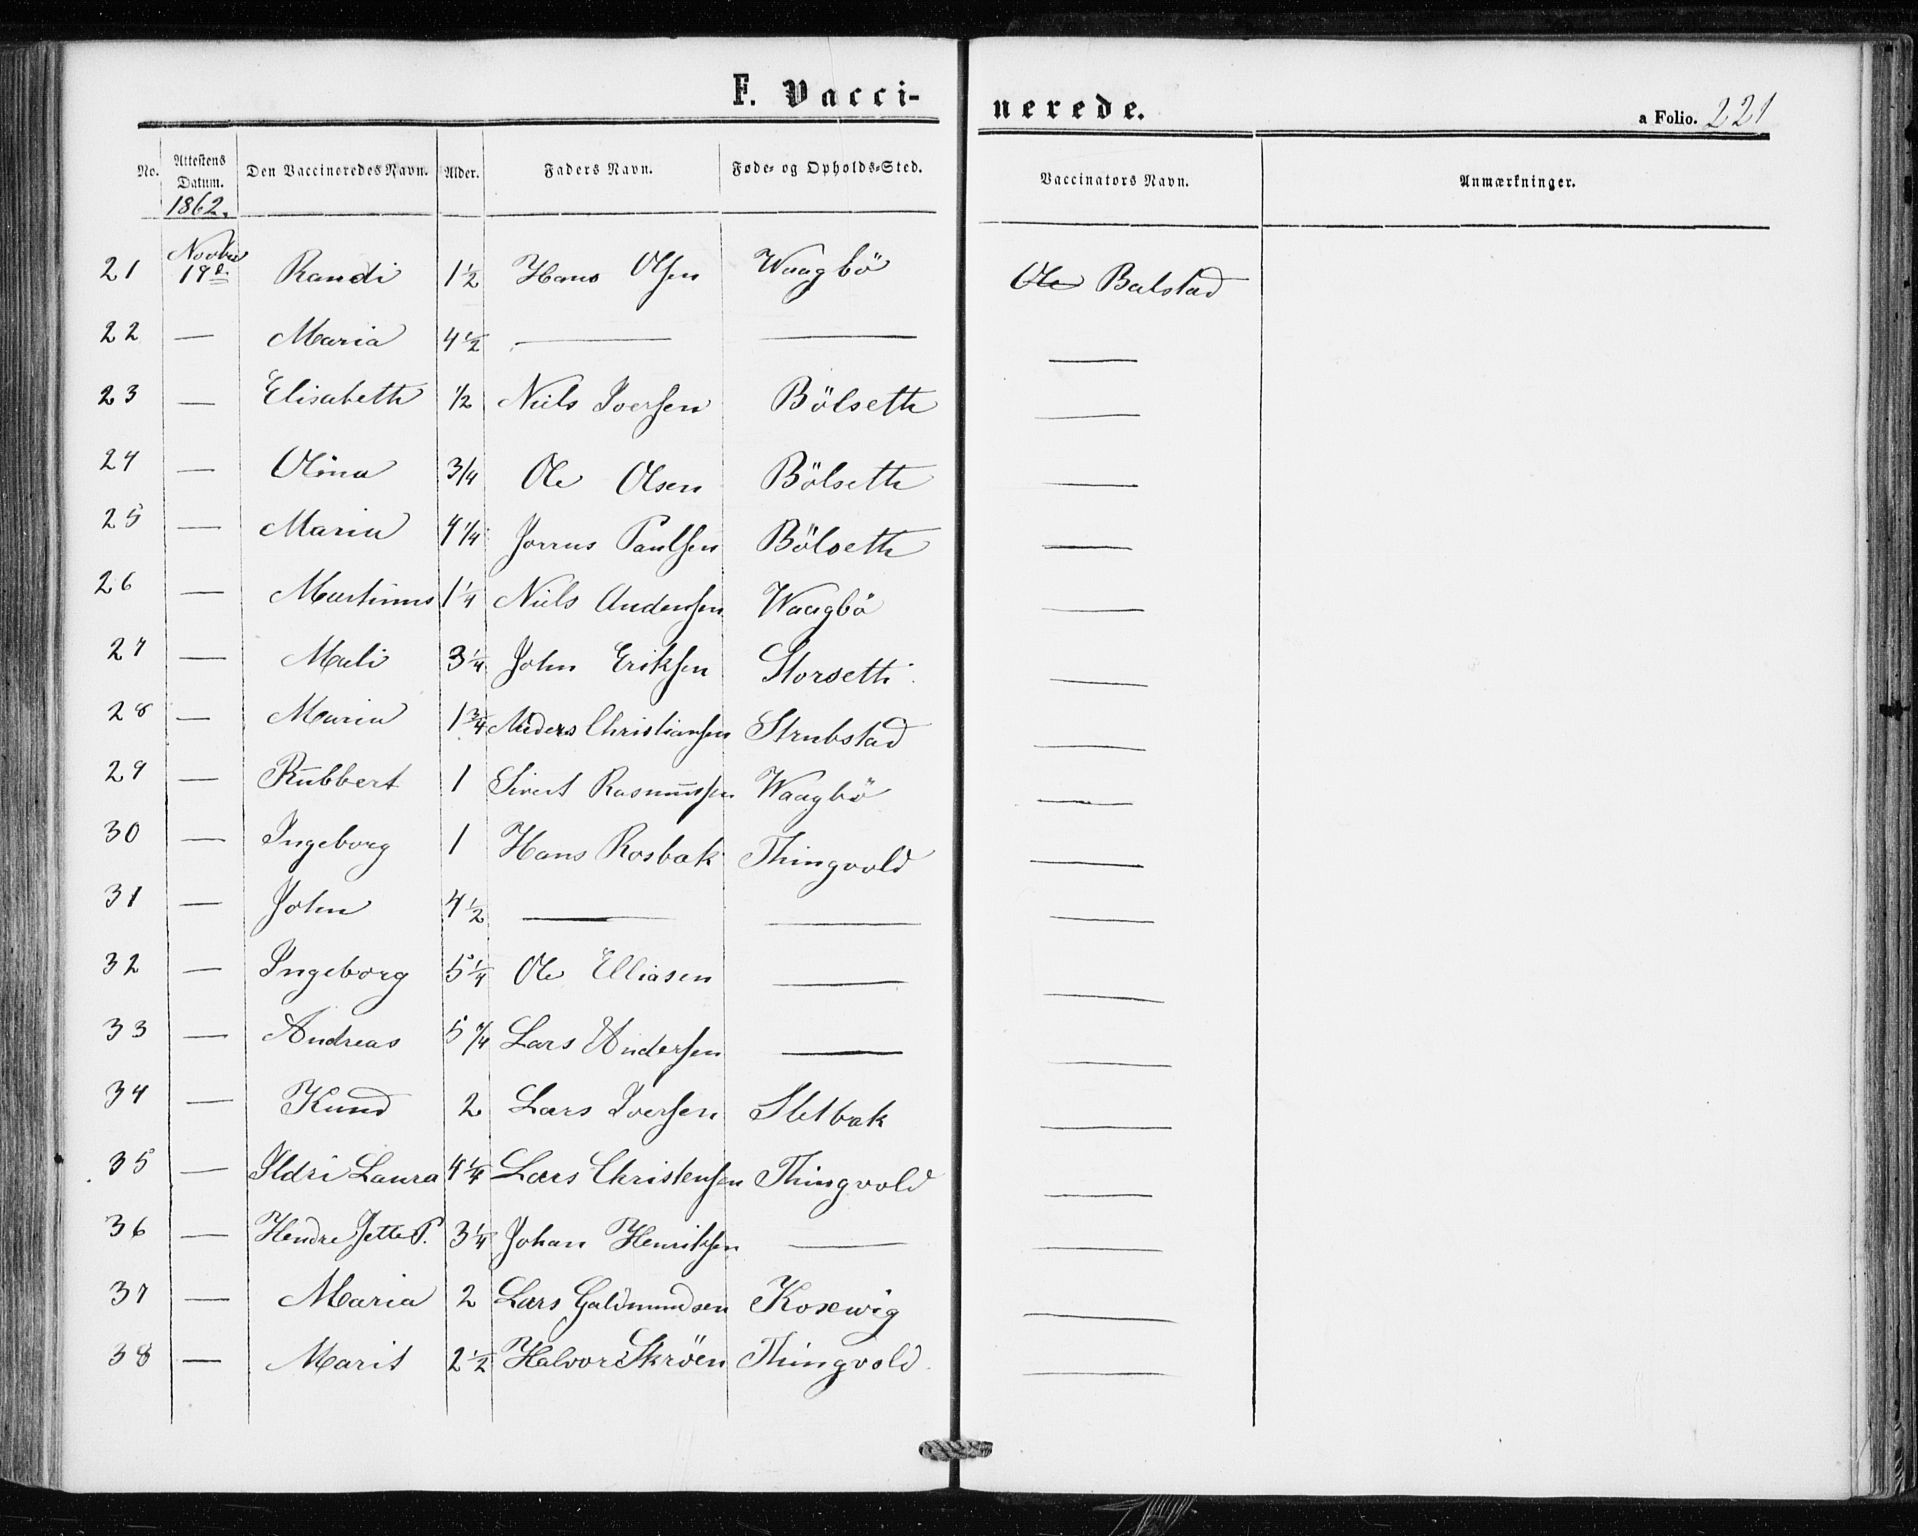 F. Vacci-
nerede.
a Folio. 221
No. | Attestens Datum. 1862. | Den Vaccineredes Navn. | Alder. | Faders Navn. | Føde- og Opholds-Sted. | Vaccinators Navn. | Anmærkninger.
21 | Novbr 19de | Randi | 1 1/2 | Hans Olsen | Waagbö | Ole Balstad
22 | — | Maria | 4 1/2 | — | — | —
23 | — | Elisabeth | 1/2 | Niels Iversen | Bölseth | —
24 | — | Olina | 3/4 | Ole Olsen | Bölseth | —
25 | — | Maria | 4 1/4 | Paulsen | Bölseth | —
26 | — | Martinus | 1 1/4 | Niels Andersen | Waagbö | —
27 | — | Mali | 3 1/4 | John Eriksen | Storseth | —
28 | — | Maria | 1 3/4 | Anders Christiansen | Strubstad | —
29 | — | Rubbert | 1 | Sivert Rasmussen | Waagbö | —
30 | — | Ingeborg | 1 | Hans Rosbak | Thingvold | —
31 | — | John | 4 1/2 | — | — | —
32 | — | Ingeborg | 5 1/4 | Ole Elliasen | — | —
33 | — | Andreas | 5 | Lars Andersen | — | —
34 | — | Knud | 2 | Lars Iversen | Sletbak | —
35 | — | Ildri Laura | 4 1/4 | Lars Christensen | Thingvold | —
36 | — | Hendre Jette P. | 3 1/4 | Johan Henriksen | — | —
37 | — | Maria | 2 | Lars Galdmundsen | Koxwig | —
38 | — | Marit | 2 1/2 | Halvor Skröen | Thingvold | —